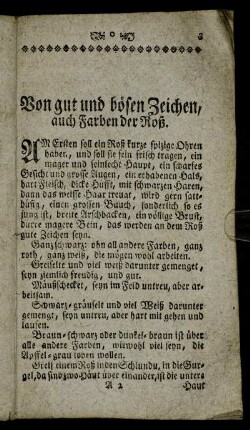 Von gut und bösen Zeichen,
auch Farben der Roß.
AM Ersten soll ein Roß kurze spizige Ohren
haben, und soll sie fein frisch tragen, ein
mager und feinlecht Haupt, ein scharfes
Gesicht und grosse Augen, ein erhabenen Hals,
hart Fleisch, dicke Hüfft, mit schwarzen Haren,
dann das weisse Haar treugt, wird gern satt-
hüfig, einen grossen Bauch, sonderlich so es
jung ist, breite Arschbacken, ein völlige Brust,
durre magere Bein, das werden an dem Roß
gute Zeichen seyn.
Ganzschwarz ohn all andere Farben, ganz
roth, ganz weiß, die mögen wohl arbeiten.
Greiselte und viel weiß darunter gemenget,
seyn ziemlich freudig, und gut.
Mäußschecket, seyn im Feld untreu, aber ar-
beitsam.
Schwarz-gräuselt und viel Weiß darunter
gemenget, seyn untreu, aber hart mit gehen und
lauffen.
Braun-schwarz oder dunckel-braun ist über
alle andere Farben, wiewohl viel seyn, die
Apffel-grau loben wollen.
Greiff einem Roß in den Schlund, in die Gur-
gel, da sind zwo Häut über einander, ist die unter
A 2 Haut